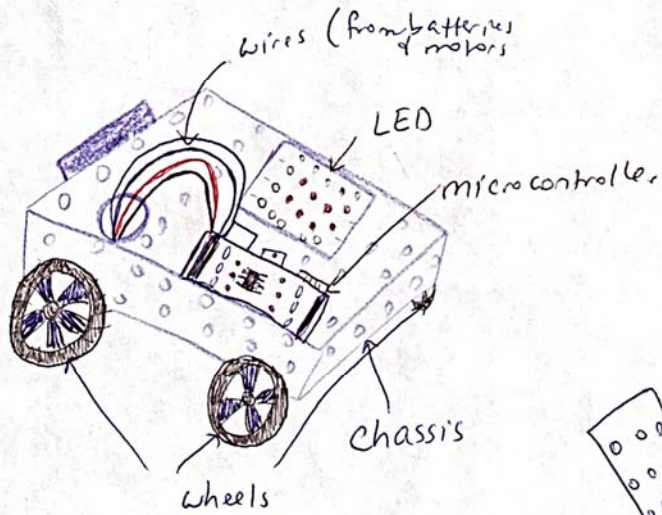 wires (from batteries
& motors
LED
microcontroller
chassis
wheels